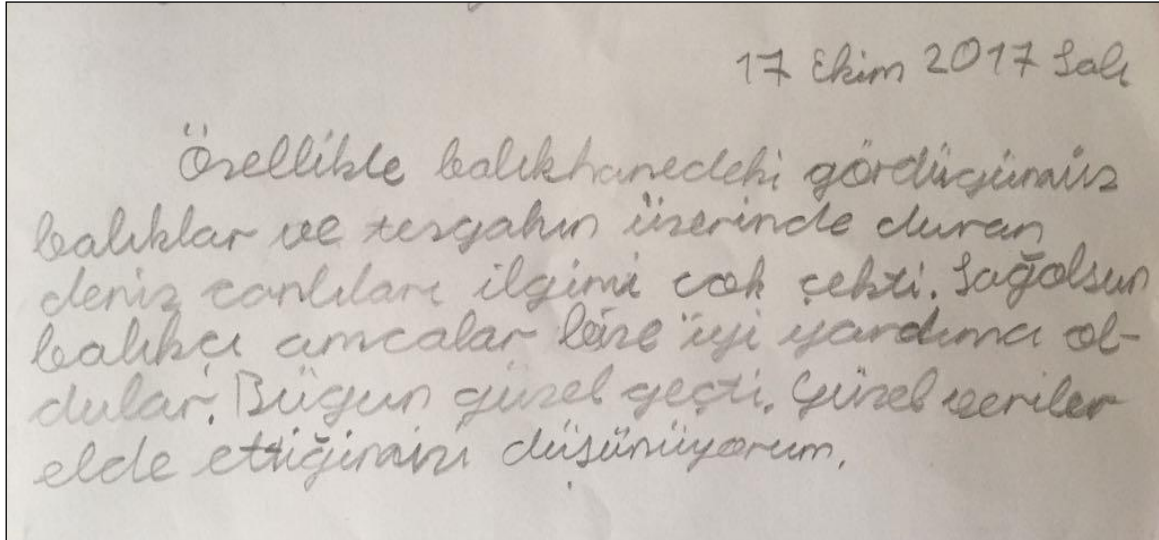 17 Ekim 2017 Salı
Özellikle balıkhanedeki gördüğümüz
balıklar ve tezgahın üzerinde duran
deniz canlıları ilgimi çok çekti. Sağolsun
balıkçı amcalar bize iyi yardımcı ol-
dular. Bügun güzel geçti. Güzel veriler
elde ettiğimizi düşünüyorum.